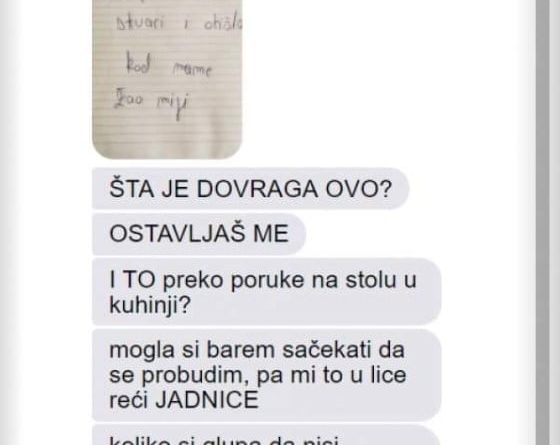 stvari i otišla
kod mame
Žao mi je
ŠTA JE DOVRAGA OVO?
OSTAVLJAŠ ME
I TO preko poruke na stolu u
kuhinji?
mogla si barem sačekati da
se probudim, pa mi to u lice
reći JADNICE
koliko si glupa da nisi